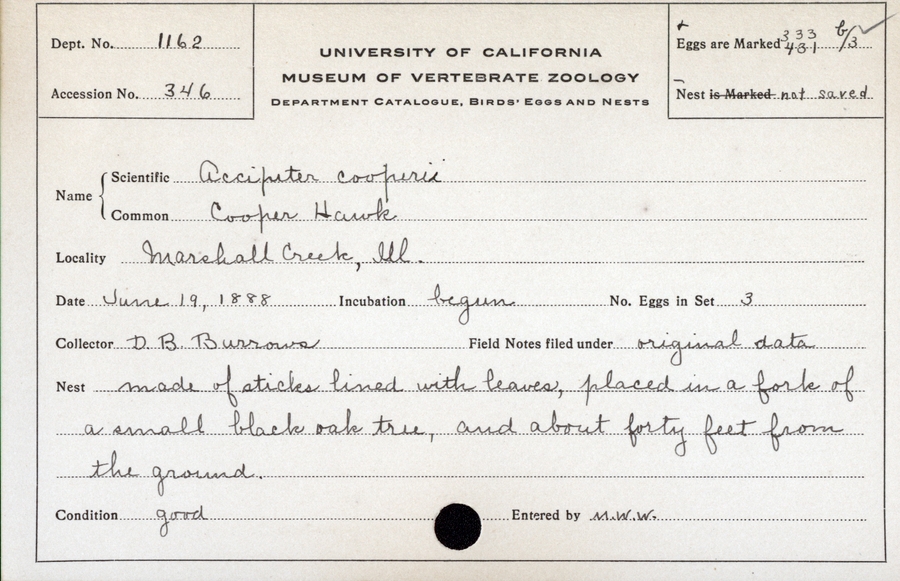 Dept. No. 1162
Accession No. 346
UNIVERSITY OF CALIFORNIA
MUSEUM OF VERTEBRATE ZOOLOGY
DEPARTMENT CATALOGUE, BIRDS' EGGS AND NESTS
Eggs are Marked 333 431 6/3
Nest is Marked not saved
Name
Scientific Accipiter cooperii
Common Cooper Hawk
Locality Marshall Creek, Ill.
Date June 19, 1888 Incubation begun No. Eggs in Set 3
Collector D. B. Burrows Field Notes filed under original data
Nest made of sticks lined with leaves, placed in a fork of
a small black oak tree, and about forty feet from
the ground.
Condition good Entered by M.W.W.